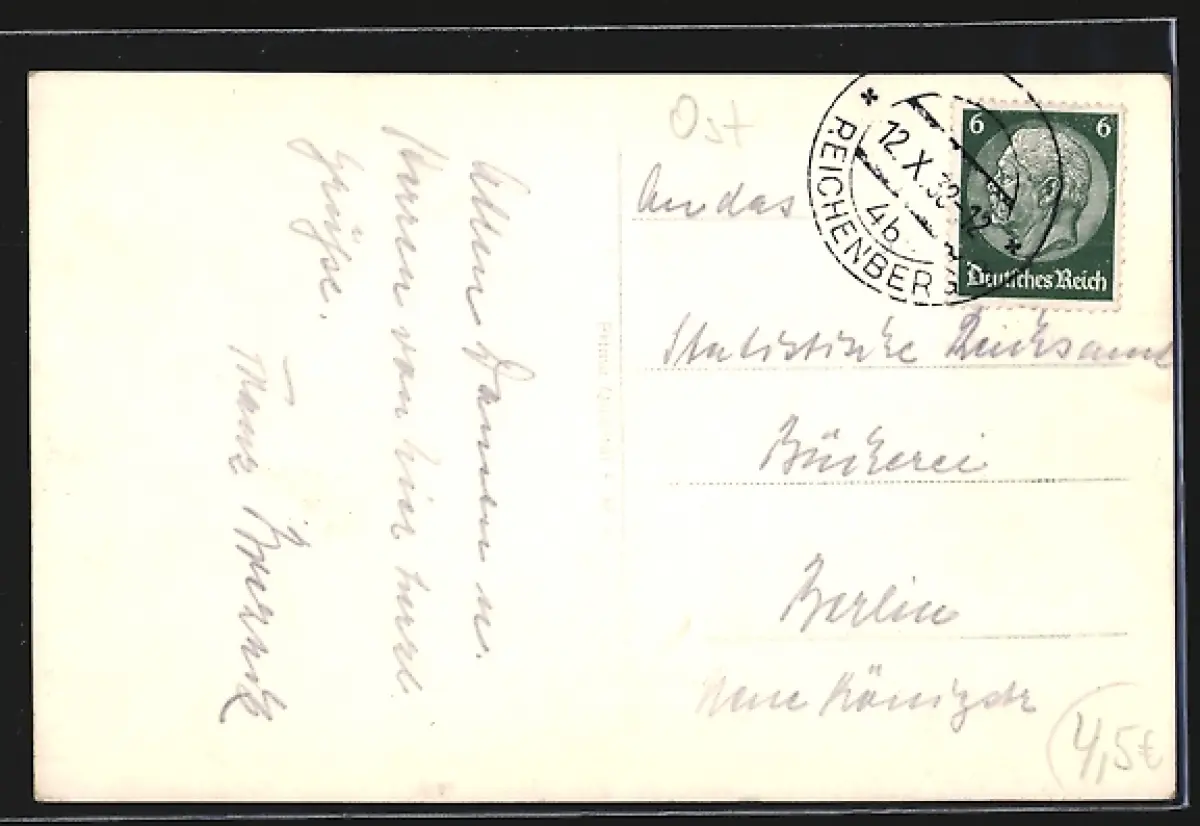 Allen Damen u.
Herren von hier herzl.
Grüsse.
Ost
An das
Statistische Reichsamt
Bücherei
Berlin
Neue Königstr
REICHENBERG
12.X.38-12
4b
6 6
Deutsches Reich
4,5€